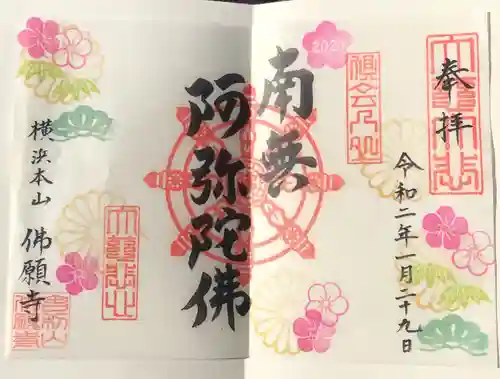 奉拝
令和二年一月二十九日
2020
倶会一処
南無
阿弥陀佛
横浜本山 佛願寺